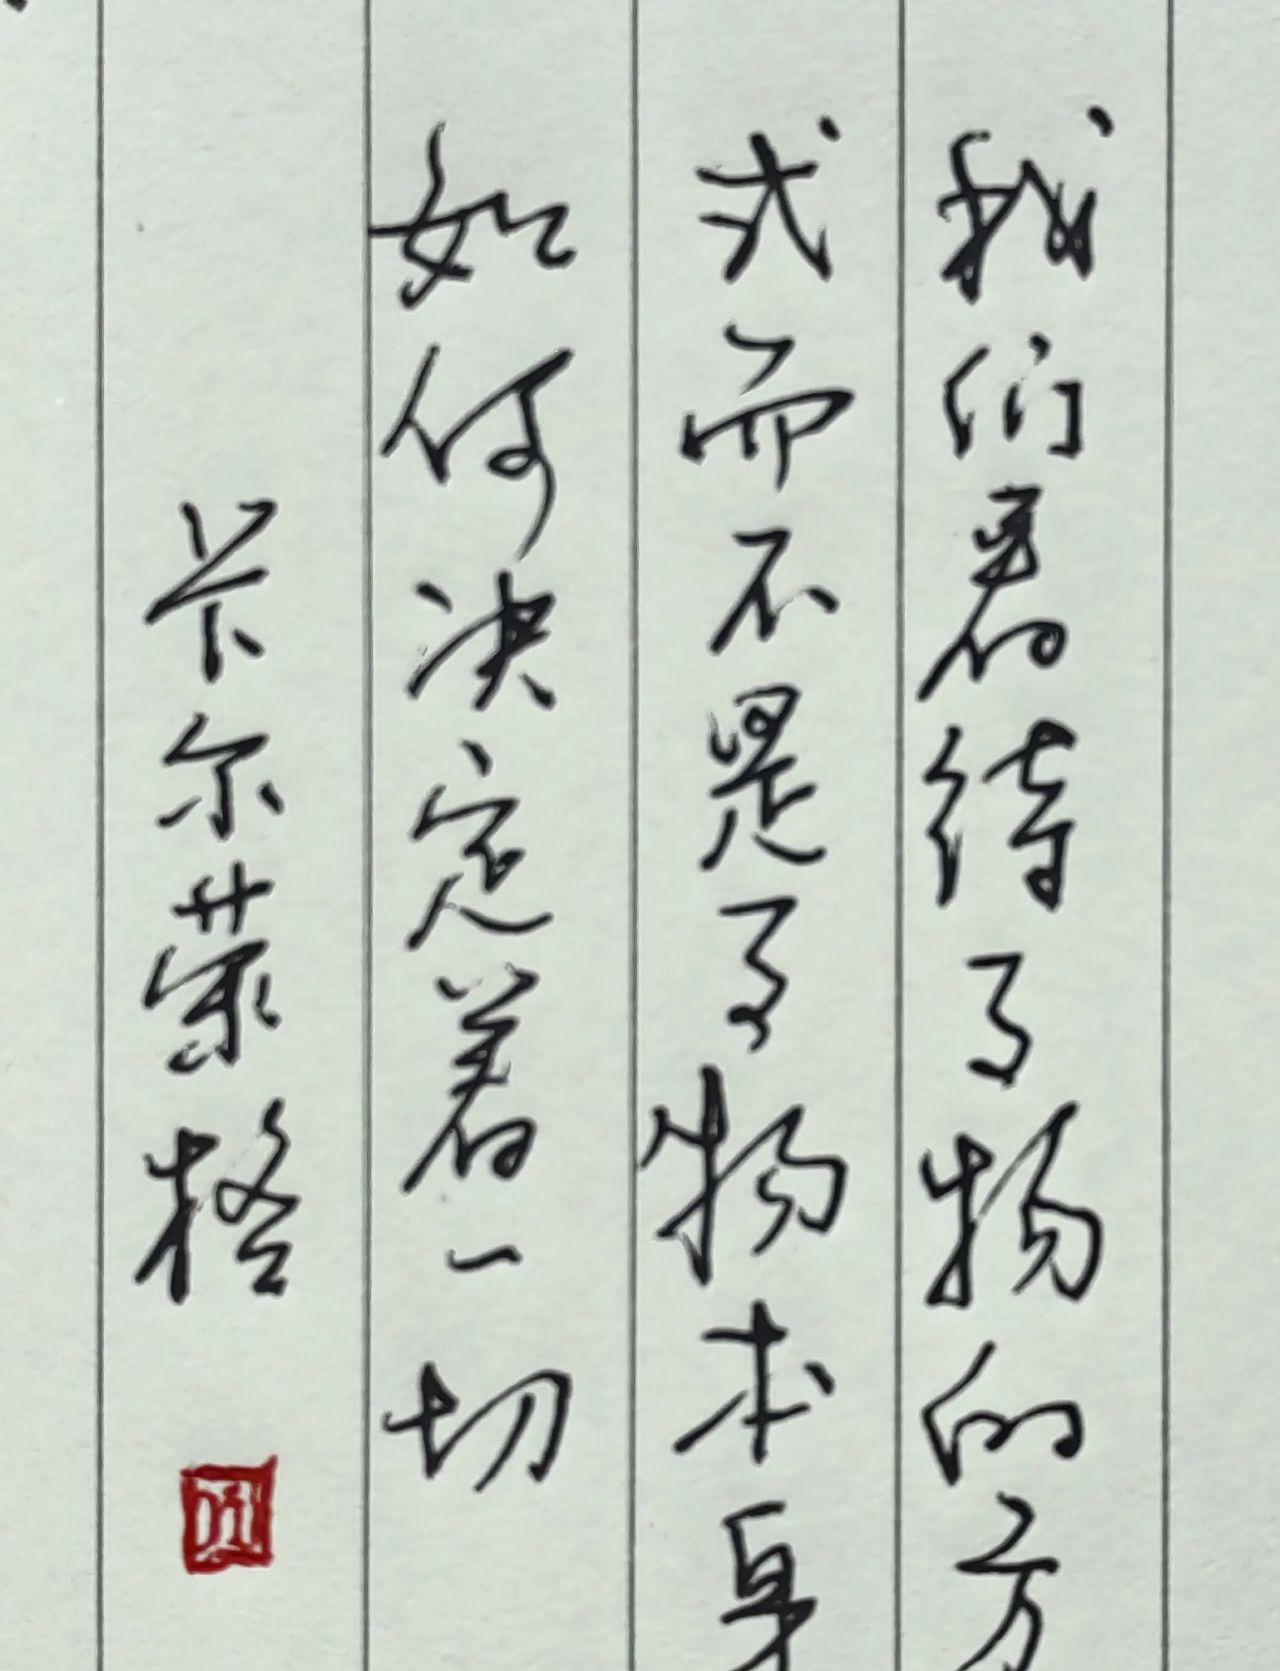 我们看待事物的方
式而不是事物本身
如何决定着一切
卡尔荣格